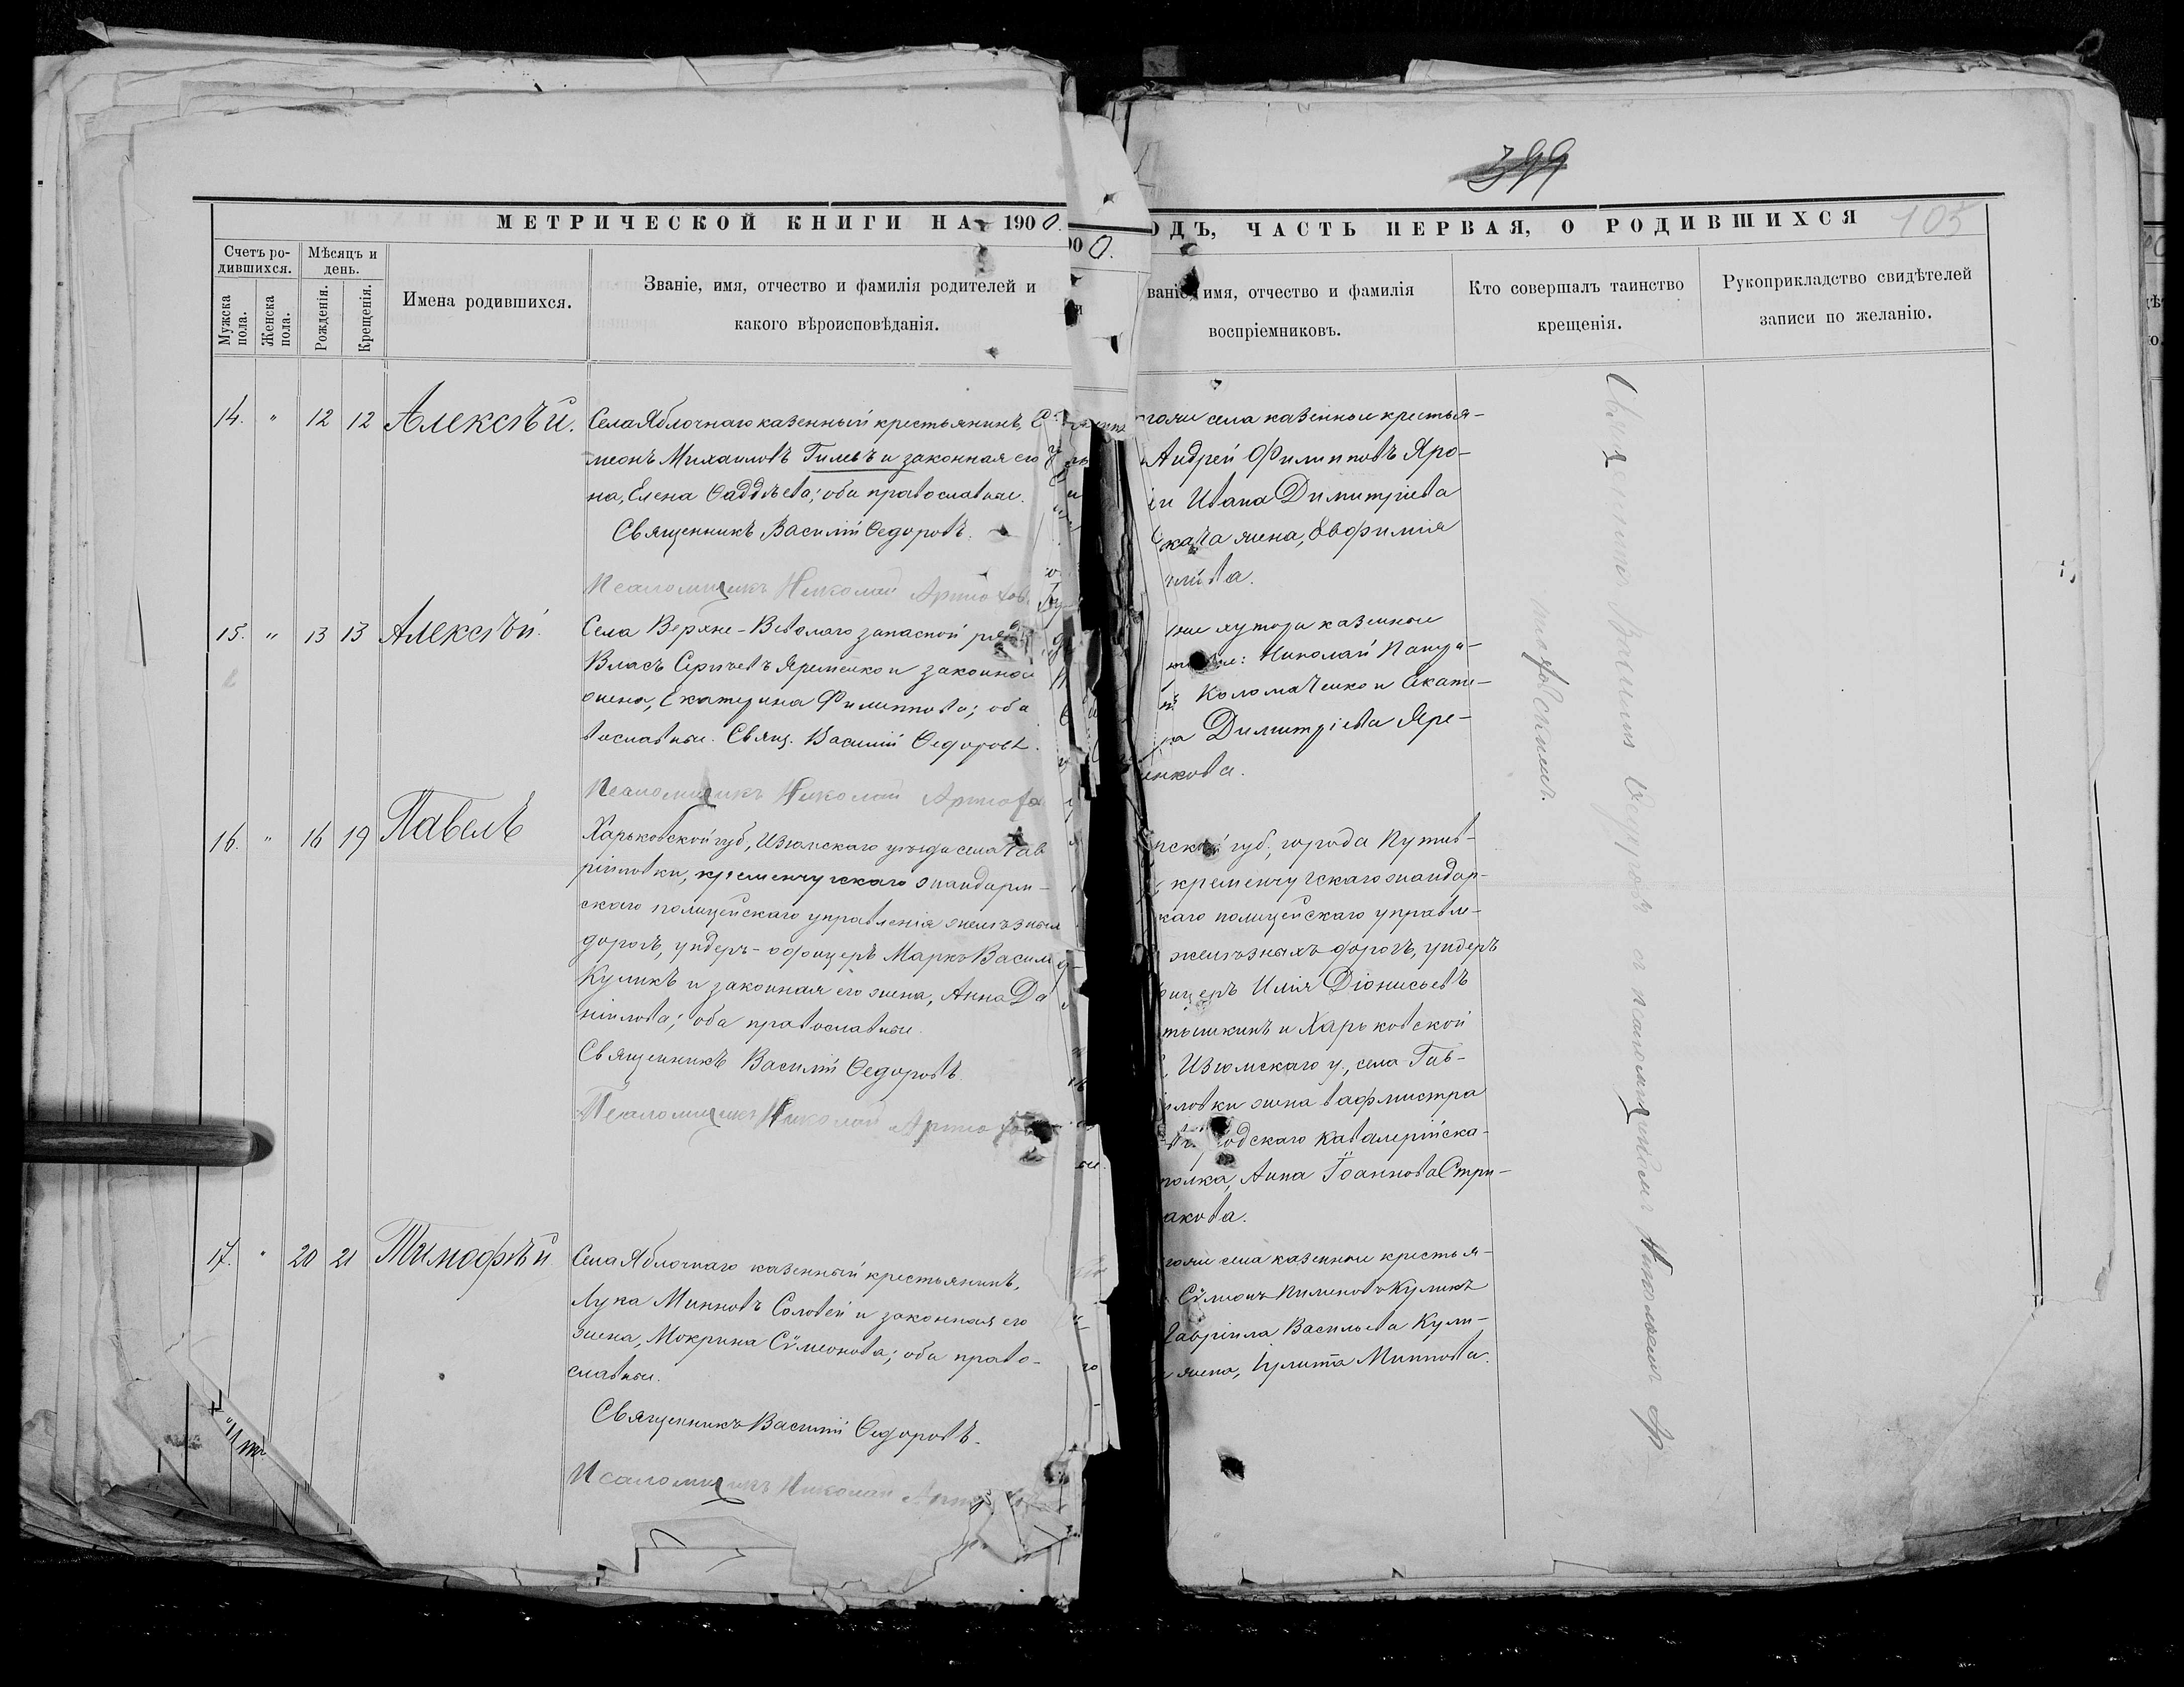 399
105
МЕТРИЧЕСКОЙ КНИГИ НА 1900.
ОДЪ, ЧАСТЬ ПЕРВАЯ, О РОДИВШИХСЯ
Счетъ ро-
дившихся.
Мѣсяцъ и
день.
Мужска
пола.
Женска
пола.
Рожденія.
Крещенія.
Имена родившихся.
Званіе, имя, отчество и фамилія родителей и
какого вѣроисповѣданія.
ваніе, имя, отчество и фамилія
воспріемниковъ.
Кто совершалъ таинство
крещенія.
Рукоприкладство свидѣтелей
записи по желанію.
14. " 12 12 Алексѣй.
Села Яблочнаго казенный крестьянинъ, С
меонъ Михаиловъ и законная его
на, Елена Фаддѣева; оба православные.
Священникъ Василій Ѳедоровъ.
Псаломщикъ Николай
села казенные крестья-
Андрей Филипповъ Яро-
и Ивана Димитріева
жена, Евфимія
15. " 13 13 Алексѣй.
Села Верхне-Ветолаго запасной
Власъ Яременко и законная
жена, Екатерина Филиппова; оба
вославные. Свящ. Василій Ѳедоровъ.
Псаломщикъ Николай
хутора казенные
Николай
Коломаченко и Екате-
Димитріева Яре-
енкова.
16. " 16 19 Павелъ
Харьковской губ., Изюмскаго уѣзда села Гав
ріиловки, кременчугскаго жандарм-
скаго полицейскаго управленія желѣзныхъ
дорогъ, ундеръ-офицеръ Маркъ Васил
Куликъ и законная его жена, Анна Да
ніилова; оба православные.
Священникъ Василій Ѳедоровъ
Псаломщикъ Николай
губ., города Путив-
кременчугскаго жандар-
скаго полицейскаго управле-
желѣзныхъ дорогъ, ундеръ
ицеръ Илія Діонисьевъ
и Харьковской
Изюмскаго у., села Гав-
ловки жена вахмистра
одскаго кавалерійска-
полка, Анна Іоаннова Стри-
акова.
17. " 20 21 Тимофѣй
Села Яблочнаго казенный крестьянинъ,
Лука Минновъ Соловей и законная его
жена, Мокрина Сѵмеонова; оба право-
славные.
Священникъ Василій Ѳедоровъ.
Псаломщикъ Николай
села казенные крестья-
Сѵмеонъ Пименовъ Куликъ
Гавріила Васильева Кули-
жена, Іулитта Миннова.
Василій Ѳедоровъ съ псаломщикомъ Николаемъ Ар-
тюховскимъ.